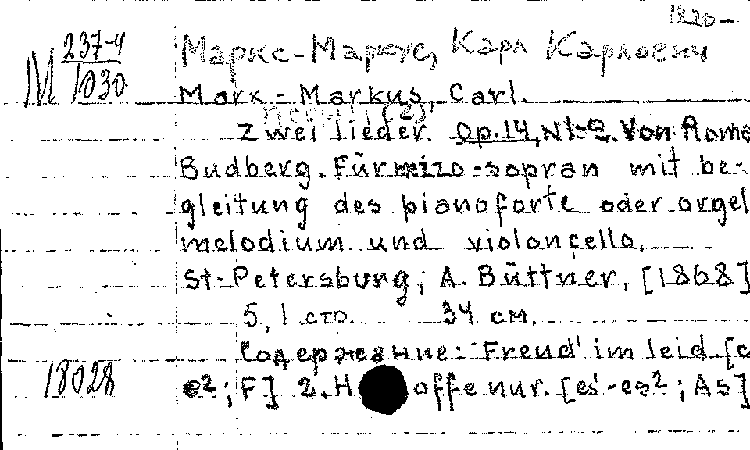 1820-
М 237-4
1030
Маркс-Маркус, Карл Карлович
Marx-Markus, Carl.
Zwei lieder. Op.14, N1-2. Von Roma
Budberg. Für mizo-sopran mit be-
gleitung des pianoforte oder orgel
melodium und violoncello.
St-Petersburg, A. Büttner, [1868]
5, 1 стр. 34 см.
Содержание: Freud' im leid [c
18028
e²; F] 2. H offe nur. [es'-es²; As]